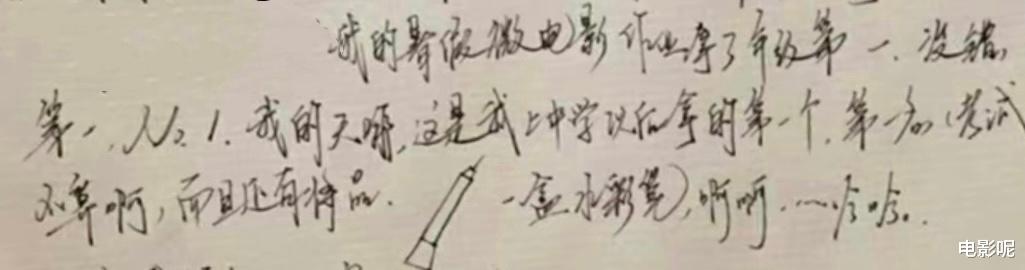 我的暑假微电影作业拿了年级第一.没错,
第一,No.1.我的天呀,这是我上中学以后拿的第一个.第一名(考试
不算啊,而且还有奖品. 一盒水彩笔),啊啊.…哈哈。
电影呢